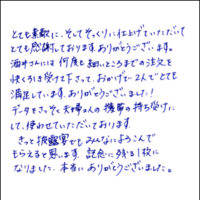 とても素敵に、そしてそっくりに仕上げていただいて
とても感謝しております。ありがとうございます。
酒井さんには何度も細いところまでの注文を
快くうけて下さって、おかげで2人でとても
満足しています。ありがとうございました!
データをさっそく夫婦2人の携帯の待ち受けに
して、使わせていただいております。
きっと披露宴でもみんなによろこんで
もらえると思います。記念に残る1枚に
なりました。本当にありがとうございました。